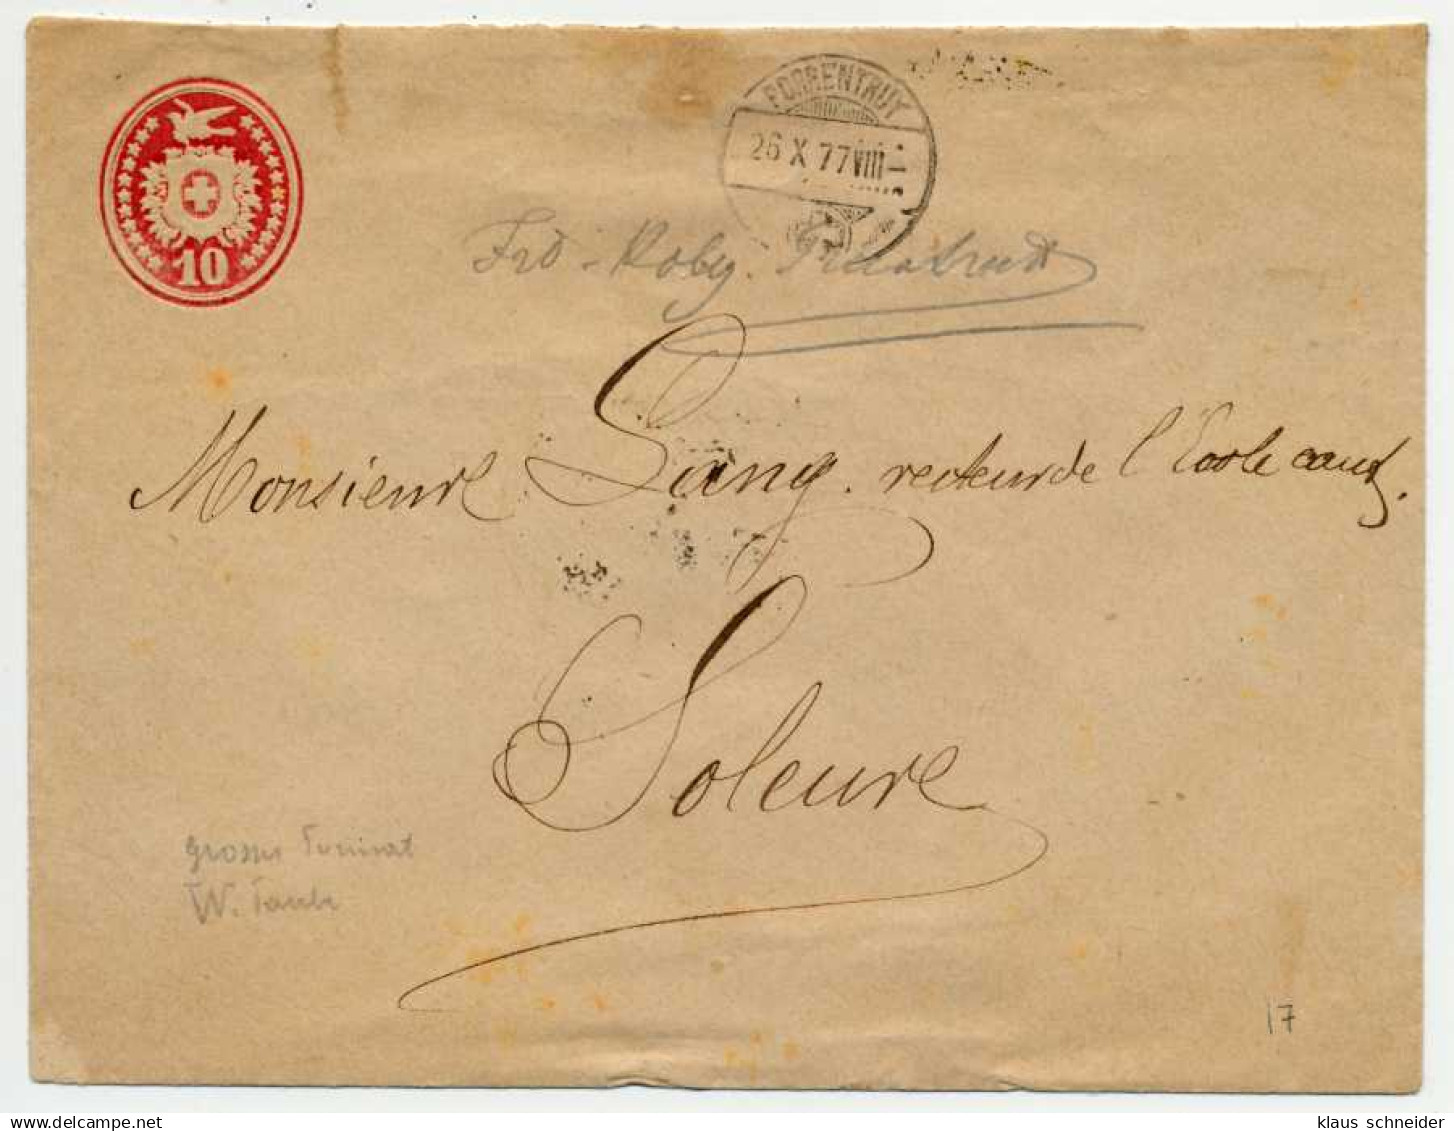 PORRENTRUY
26 X 77 VIII –
10
Frd - Roby.
Monsieur Lang. recteur de l'Ecole cant.
Soleure
grosses Format
W. Taube
17
www.delcampe.net
klaus schneider